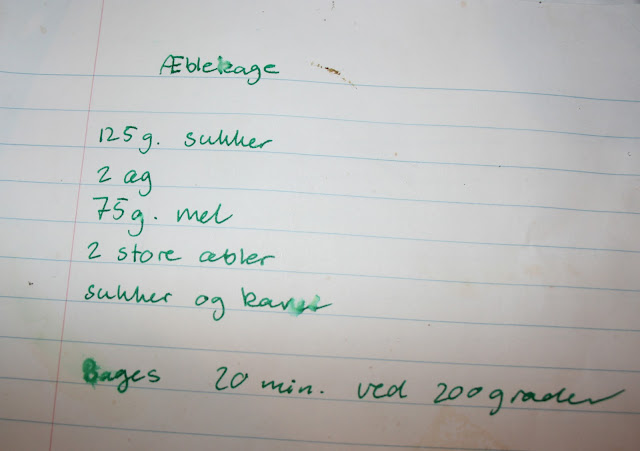 Æblekage
125g. sukker
2 æg
75g. mel
2 store æbler
sukker og kanel
Bages 20 min. ved 200 grader